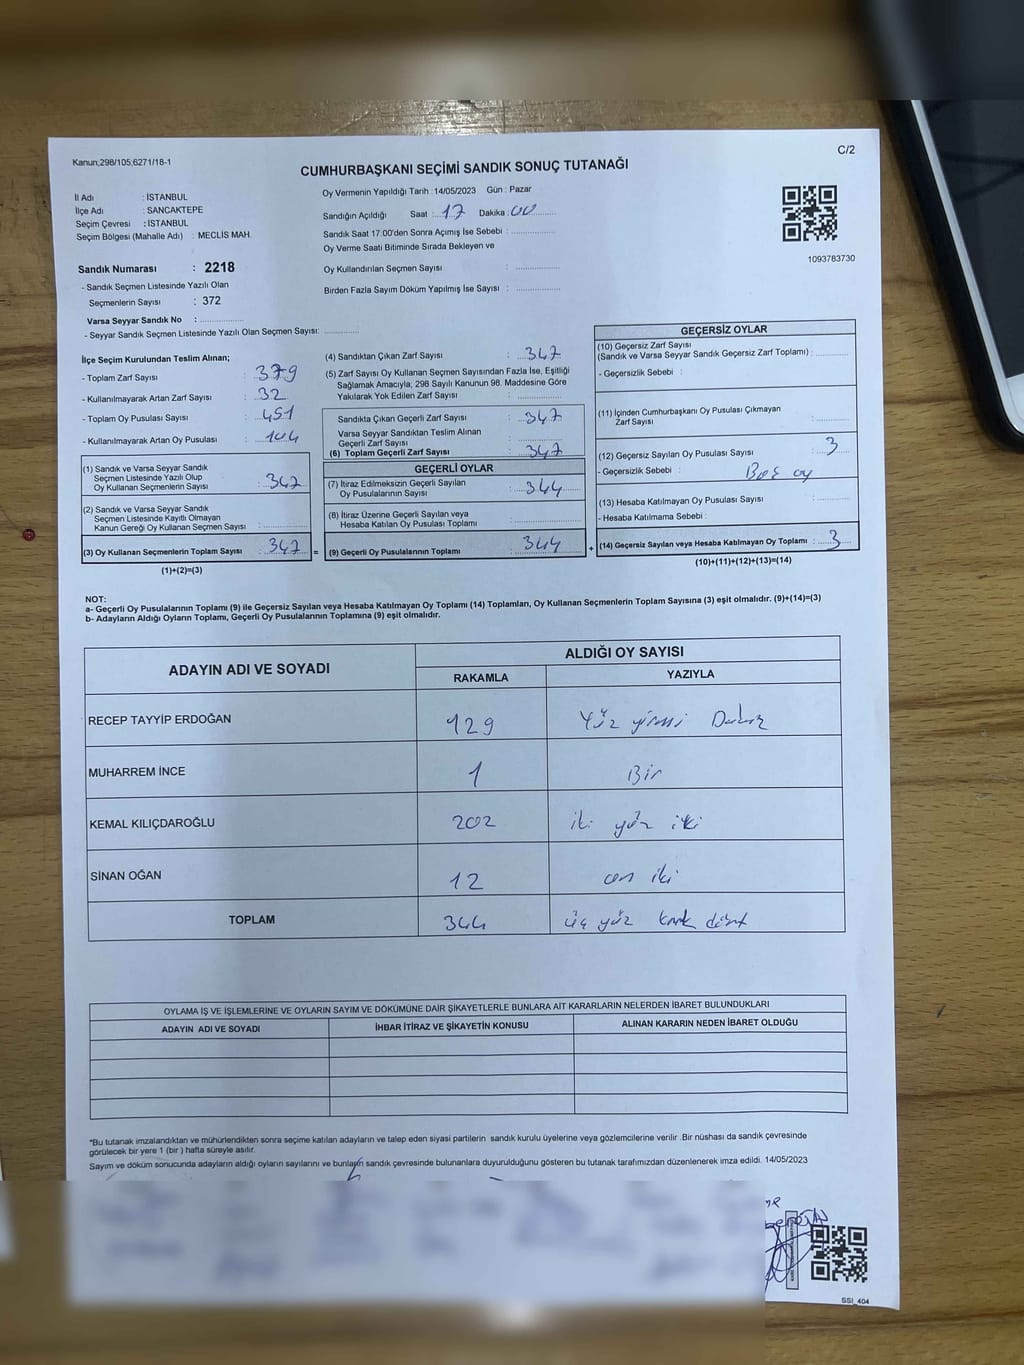 Kanun;298/105;6271/18-1
C/2
CUMHURBAŞKANI SEÇİMİ SANDIK SONUÇ TUTANAĞI
İl Adı : İSTANBUL
İlçe Adı : SANCAKTEPE
Seçim Çevresi : İSTANBUL
Seçim Bölgesi (Mahalle Adı) : MECLİS MAH.
Sandık Numarası : 2218
- Sandık Seçmen Listesinde Yazılı Olan
Seçmenlerin Sayısı : 372
Varsa Seyyar Sandık No :
- Seyyar Sandık Seçmen Listesinde Yazılı Olan Seçmen Sayısı:
Oy Vermenin Yapıldığı Tarih : 14/05/2023 Gün : Pazar
Sandığın Açıldığı Saat : 17 Dakika : 00
Sandık Saat 17.00'den Sonra Açımış İse Sebebi :
Oy Verme Saati Bitiminde Sırada Bekleyen ve
Oy Kullandırılan Seçmen Sayısı :
Birden Fazla Sayım Döküm Yapılmış İse Sayısı :
1093783730
İlçe Seçim Kurulundan Teslim Alınan;
- Toplam Zarf Sayısı : 379
- Kullanılmayarak Artan Zarf Sayısı : 32
- Toplam Oy Pusulası Sayısı : 451
- Kullanılmayarak Artan Oy Pusulası : 104
(1) Sandık ve Varsa Seyyar Sandık
Seçmen Listesinde Yazılı Olup
Oy Kullanan Seçmenlerin Sayısı : 347
(2) Sandık ve Varsa Seyyar Sandık
Seçmen Listesinde Kayıtlı Olmayan
Kanun Gereği Oy Kullanan Seçmen Sayısı :
(3) Oy Kullanan Seçmenlerin Toplam Sayısı : 347 =
(1)+(2)=(3)
(4) Sandıktan Çıkan Zarf Sayısı : 347
(5) Zarf Sayısı Oy Kullanan Seçmen Sayısından Fazla İse, Eşitliği
Sağlamak Amacıyla, 298 Sayılı Kanunun 98. Maddesine Göre
Yakılarak Yok Edilen Zarf Sayısı :
Sandıkta Çıkan Geçerli Zarf Sayısı : 347
Varsa Seyyar Sandıktan Teslim Alınan
Geçerli Zarf Sayısı :
(6) Toplam Geçerli Zarf Sayısı : 347
GEÇERLİ OYLAR
(7) İtiraz Edilmeksizin Geçerli Sayılan
Oy Pusulalarının Sayısı : 344
(8) İtiraz Üzerine Geçerli Sayılan veya
Hesaba Katılan Oy Pusulası Toplamı :
(9) Geçerli Oy Pusulalarının Toplamı : 344 +
GEÇERSİZ OYLAR
(10) Geçersiz Zarf Sayısı
(Sandık ve Varsa Seyyar Sandık Geçersiz Zarf Toplamı) :
- Geçersizlik Sebebi :
(11) İçinden Cumhurbaşkanı Oy Pusulası Çıkmayan
Zarf Sayısı :
(12) Geçersiz Sayılan Oy Pusulası Sayısı : 3
- Geçersizlik Sebebi : Boş oy
(13) Hesaba Katılmayan Oy Pusulası Sayısı :
- Hesaba Katılmama Sebebi :
(14) Geçersiz Sayılan veya Hesaba Katılmayan Oy Toplamı : 3
(10)+(11)+(12)+(13)=(14)
NOT:
a- Geçerli Oy Pusulalarının Toplamı (9) ile Geçersiz Sayılan veya Hesaba Katılmayan Oy Toplamı (14) Toplamları, Oy Kullanan Seçmenlerin Toplam Sayısına (3) eşit olmalıdır. (9)+(14)=(3)
b- Adayların Aldığı Oyların Toplamı, Geçerli Oy Pusulalarının Toplamına (9) eşit olmalıdır.
ADAYIN ADI VE SOYADI
ALDIĞI OY SAYISI
RAKAMLA YAZIYLA
RECEP TAYYİP ERDOĞAN 129 Yüz yirmi Dokuz
MUHARREM İNCE 1 Bir
KEMAL KILIÇDAROĞLU 202 iki yüz iki
SİNAN OĞAN 12 on iki
TOPLAM 344 üç yüz kırk dört
OYLAMA İŞ VE İŞLEMLERİNE VE OYLARIN SAYIM VE DÖKÜMÜNE DAİR ŞİKAYETLERLE BUNLARA AİT KARARLARIN NELERDEN İBARET BULUNDUKLARI
ADAYIN ADI VE SOYADI İHBAR İTİRAZ VE ŞİKAYETİN KONUSU ALINAN KARARIN NEDEN İBARET OLDUĞU
*Bu tutanak imzalandıktan ve mühürlendikten sonra seçime katılan adayların ve talep eden siyasi partilerin sandık kurulu üyelerine veya gözlemcilerine verilir .Bir nüshası da sandık çevresinde
görülecek bir yere 1 (bir ) hafta süreyle asılır.
Sayım ve döküm sonucunda adayların aldığı oyların sayılarını ve bunların sandık çevresinde bulunanlara duyurulduğunu gösteren bu tutanak tarafımızdan düzenlenerek imza edildi. 14/05/2023
SSI_404